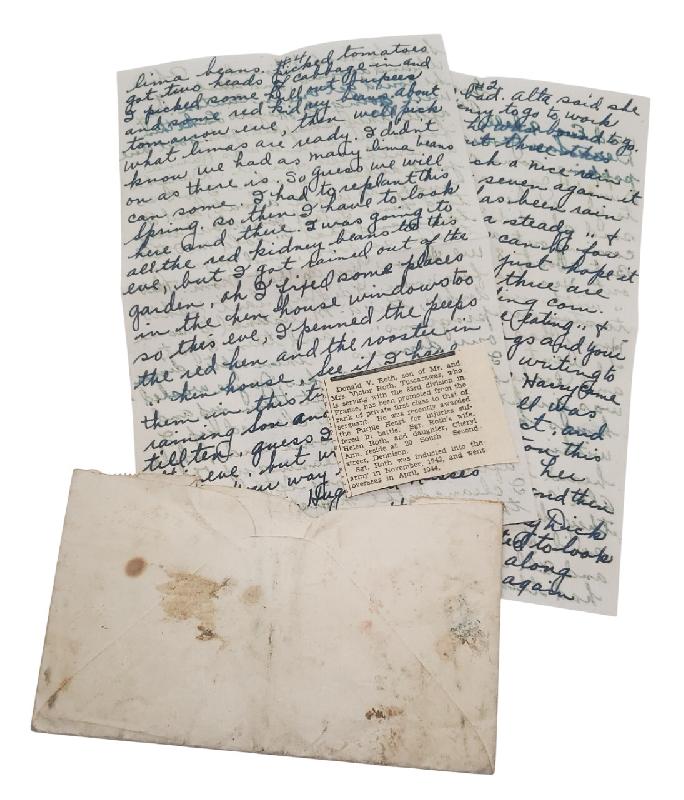 #4
lima beans. Picked tomatoes
got two heads of cabbage in and
I picked some hull out
and some red kidney beans about
tomorrow eve, then well pick
what limas are ready. I didnt
know we had as many lima beans
on as there is. So guess we will
can some. I had to replant this
Spring. so then I have to look
here and there. I was going to
all the red kidney beans this
eve, but I got rained out of the
garden, oh I fixed some places
in the hen house windows too
so this eve, I penned the peeps
the red hen and the rooster in
hen house, see if I
them in this
raining son and
till ten, guess I
eve, but
our way
Donald V. Roth, son of Mr. and
Mrs. Victor Roth, Tuscarawas, who
is serving with the 83rd division in
France, has been promoted from the
rank of private first class to that of
sergeant. He was recently awarded
the Purple Heart for injuries suf-
fered in battle. Sgt. Roth's wife,
Helen Roth, and daughter, Cheryl
Ann, reside at 20 South Second
street, Dennison.
Sgt. Roth was inducted into the
army in November, 1942, and went
overseas in April, 1944.
#2
Alta said she
to go to work
he was bound to go.
three
a nice rain
seven again it
has been rain
a steady " &
can be for
just hope it
three are
corn.
eating " &
go and you're
writing to
Harry
was
and
on this
her
and then
Dick
to look
along
again